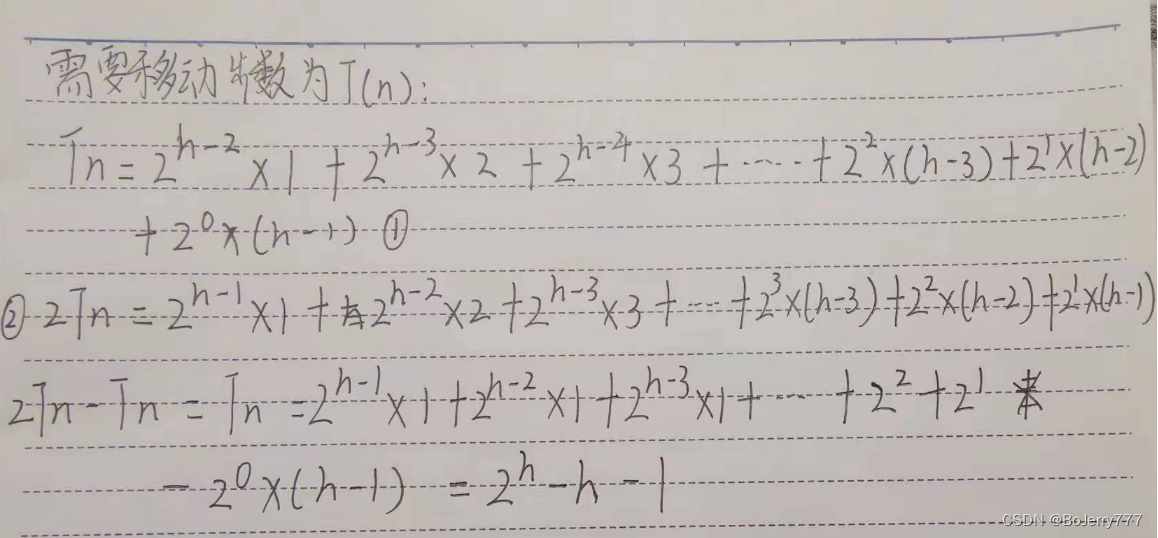 需要移动步数为T(n):
Tn = 2^(h-2) × 1 + 2^(h-3) × 2 + 2^(h-4) × 3 + ····· + 2^2 × (h-3) + 2^1 × (h-2)
+ 2^0 × (h-1) ①
② 2Tn = 2^(h-1) × 1 + 2^(h-2) × 2 + 2^(h-3) × 3 + ····· + 2^3 × (h-3) + 2^2 × (h-2) + 2^1 × (h-1)
2Tn - Tn = Tn = 2^(h-1) × 1 + 2^(h-2) × 1 + 2^(h-3) × 1 + ····· + 2^2 + 2^1
- 2^0 × (h-1) = 2^h - h - 1
CSDN @BoJerry777